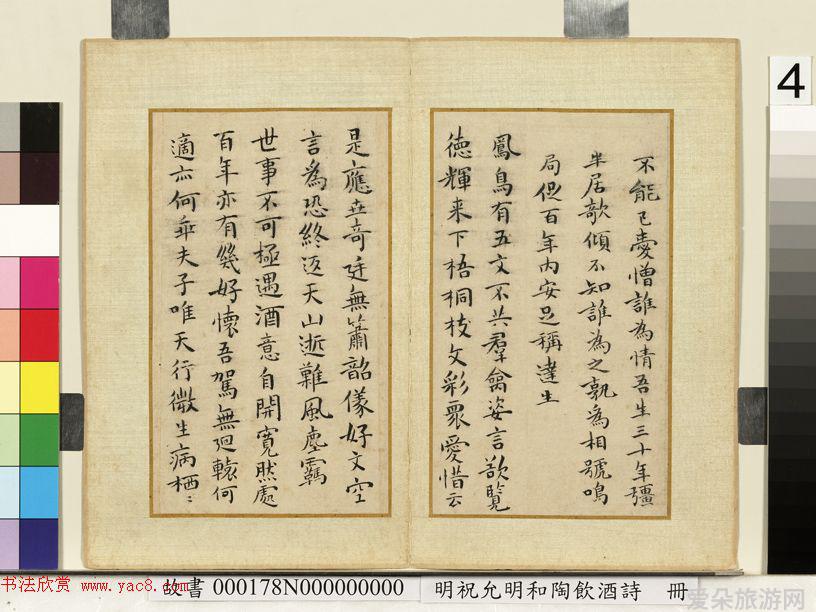 不能已憂憎誰為情吾生三十年彊
半居欹傾不知誰為之孰為相號鳴
局促百年內安足稱達生
鳳鳥有五文不共羣禽姿言欲覽
德輝来下梧桐枝文彩眾愛惜云
是應世奇廷無簫韶儀好文空
言為恐終返天山逝難風塵羈
世事不可極遇酒意自開寬然處
百年亦有幾好懷吾駕無迴轅何
適亦何乖夫子唯天行微生病栖〻
4
書法欣赏 www.yac8.com
故書 000178N000000000
明祝允明和陶飲酒詩 冊
爱朵旅游网